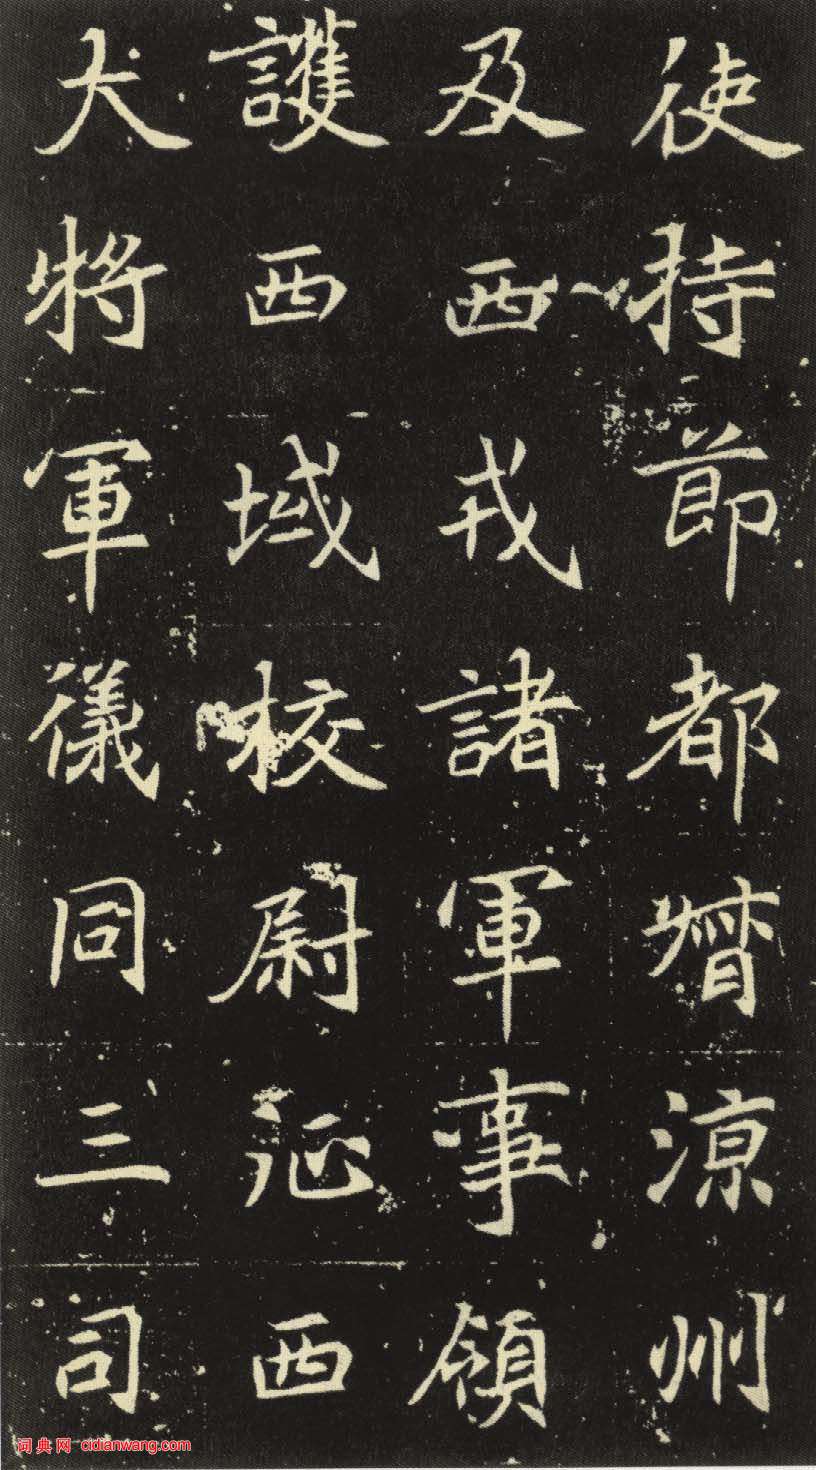 使持節都督涼州
及西戎諸軍事領
護西域校尉征西
大將軍儀同三司
词典网 cidianwang.com